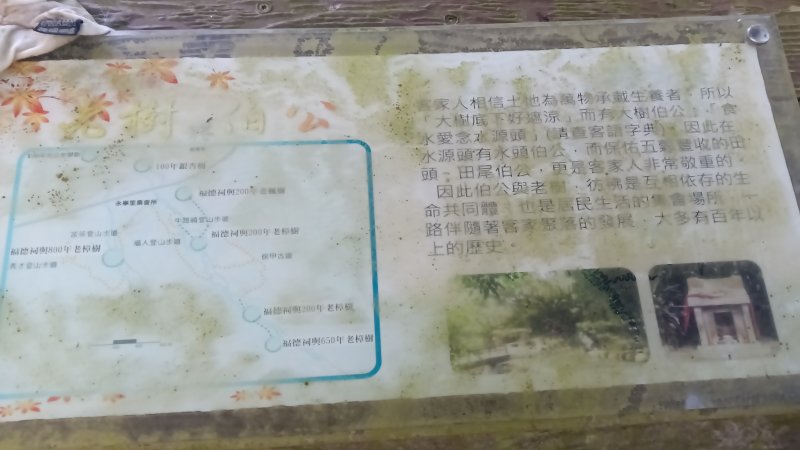 老樹 伯公
客家人相信土地為萬物承載生養者，所以
「大樹底下好遮涼」而有大樹伯公；「食
水愛念水源頭」(請查客語字典)，因此在
水源頭有水頭伯公，而保佑五穀豐收的田
頭、田尾伯公，更是客家人非常敬重的。
因此伯公與老樹，彷彿是互相依存的生
命共同體，也是居民生活的集會場所，一
路伴隨著客家聚落的發展，大多有百年以
上的歷史。
100年銀杏樹
福德祠與200年老楓樹
永寧里集會所
牛擔崎登山步道
福德祠與300年老樟樹
福德祠與800年老樟樹
福人登山步道
保甲古道
秀才登山步道
福德祠與200年老樟樹
福德祠與650年老樟樹